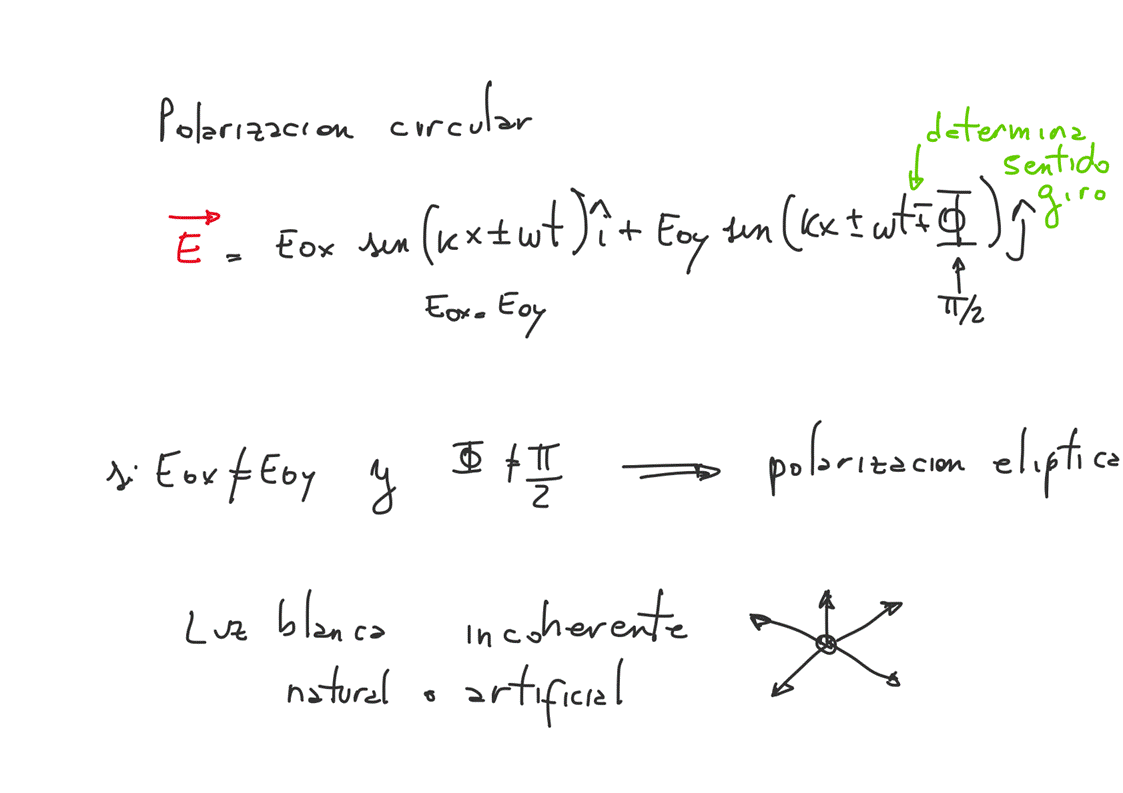 Polarizacion circular
determina
sentido
giro
E⃗ = Eox sen (kx ± wt) î + Eoy sen (kx ± wt ∓ Φ) ĵ
Eox = Eoy
π/2
si Eox ≠ Eoy y Φ ≠ π/2 ⟹ polarizacion eliptica
Luz blanca incoherente
natural o artificial